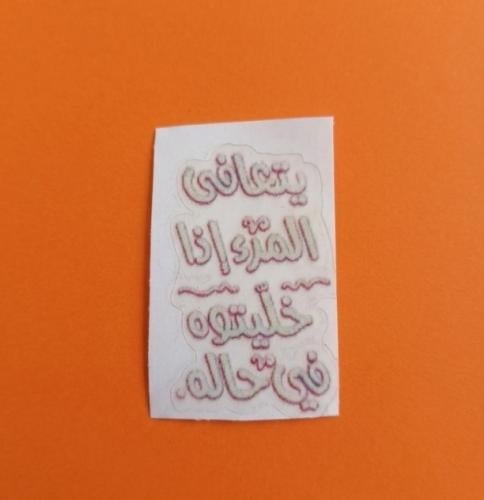 يتعافى
المرء إذا
خلّيتوه
في حاله.